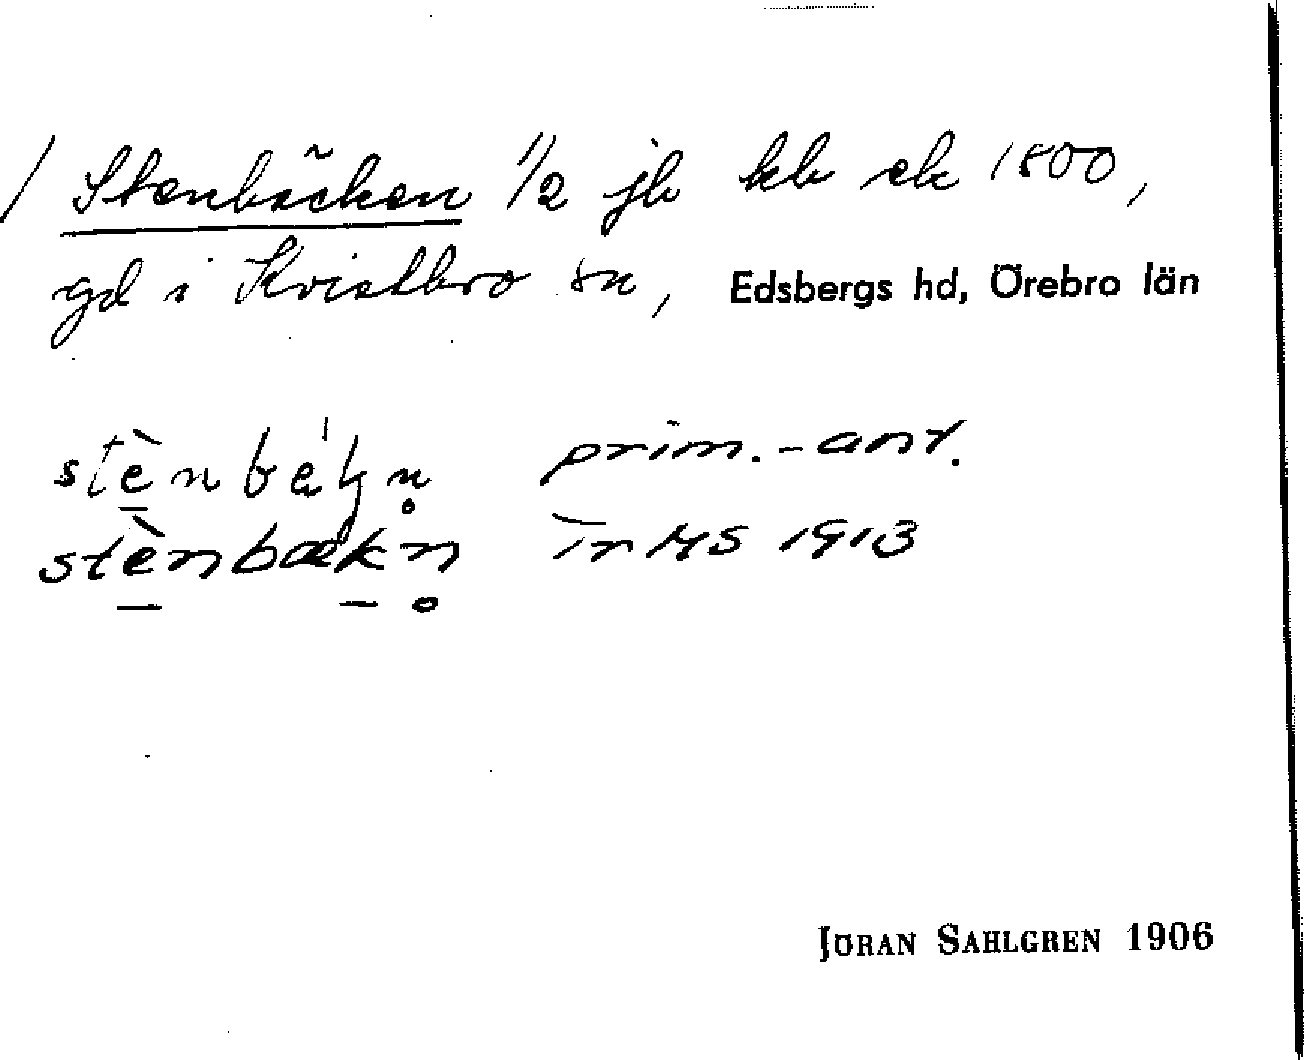 / Stenbäcken 1/2 jb kb ek 1800,
gd i Kvistbro sn, Edsbergs hd, Örebro län
prim.-ant.
stènbækn̥ in MS 1913
JÖRAN SAHLGREN 1906